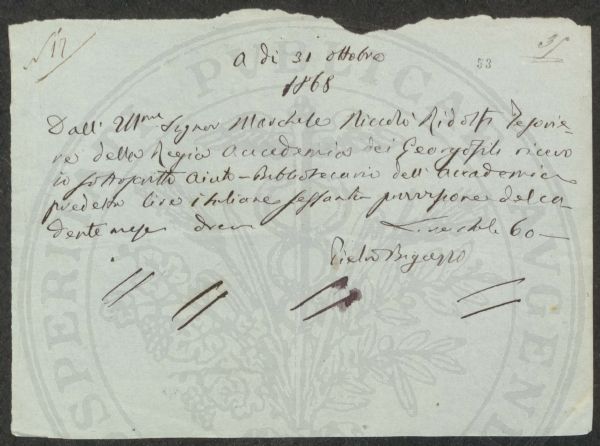 N 17
35
53
a di 31 ottobre
1868
Dall' Ill.mo Signor Marchese Niccolò Ridolfi Tesorie-
re della Regia Accademia dei Georgofili ricevo
io sottoscritto aiuto-Bibliotecario dell'Accademia
predetta lire italiane sessanta provvisione del ca-
dente mese dico Lire ital.e 60—
Pietro Bigazzi
PUBLICA